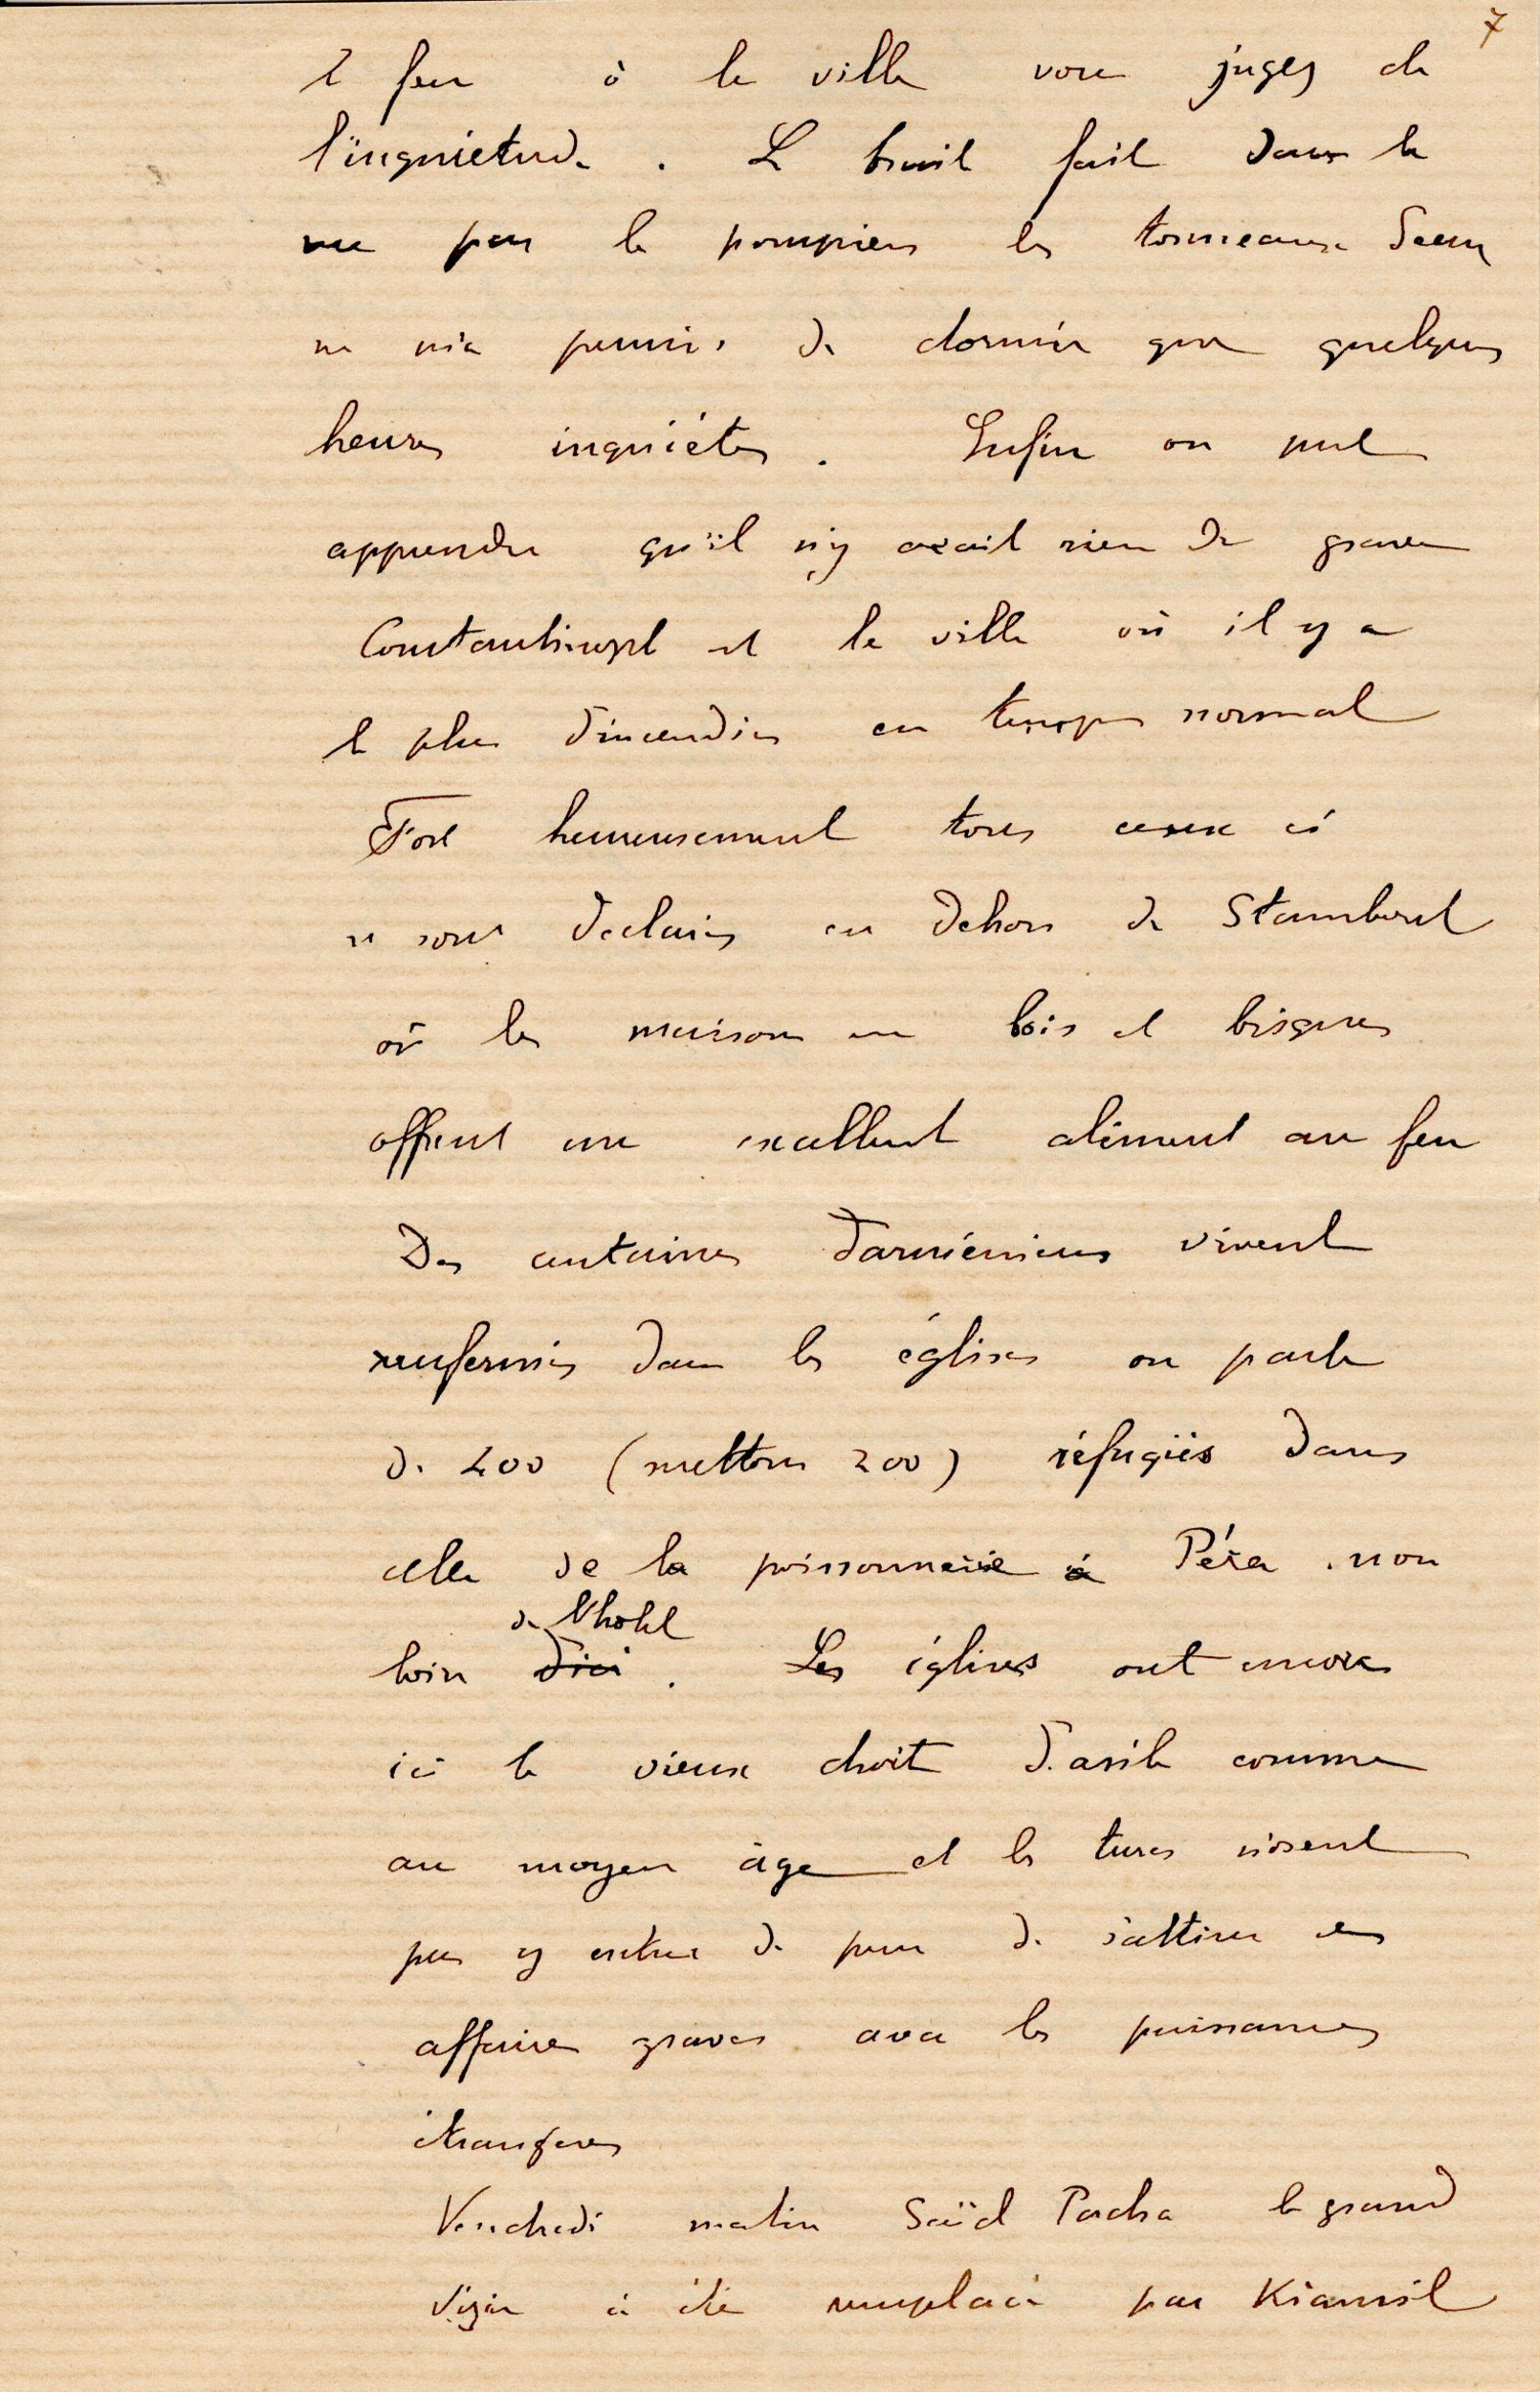 7
le feu à la ville vous jugez de
l'inquietude . Le bruit fait dans la
rue par le pompiers les tonneaux d'eau
ne m'a permis de dormir que quelques
heures inquiètes . Enfin on put
apprendre qu'il n'y avait rien de grave
Constantinople est la ville où il y a
le plus d'incendies en temps normal
Fort heureusement tous ceux ci
se sont declarés en dehors de Stamboul
où les maisons en bois et
offrent un excellent aliment au feu
Des centaines d'arméniens vivent
renfermés dans les églises on parle
de 400 (mettons 200) réfugiés dans
celle de la poissonnerie à Péra non
de l'hotel
loin d'ici . Les églises ont encore
ici le vieux droit d'asile comme
au moyen âge et les turcs n'osent
pas y entrer de peur de s'attirer des
affaires graves avec les puissances
étrangères
Vendredi matin Saïd Pacha le grand
Vizir a été remplacé par Kiamil